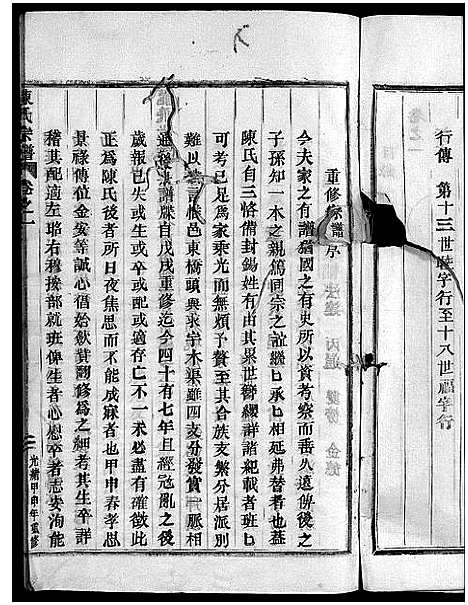 行傳 第十三世睦字行至十八世福字行
重修宗譜序
今夫家之有譜猶國之有史所以資考察而垂久遠俾後之
子孫知一本之親篤同宗之誼繼匕承匕相延弗替者也蓋
陳氏自三恪備封錫姓有由其累世簪纓詳諸紀載者班匕
可考已足爲家乘光而無煩予贅至其合族支繁分居派別
難以
悵邑東橋頭與求
木渠雖四支分發實一脈相
通
宗譜牒自戊戌重修迄今四十有七年且經寇亂之後
歲報已失或生或卒或配或適存亡不一未必盡有確徵此
正爲陳氏後者所日夜焦思而不能成寐者也甲申春孝思
景祿傳位金安等誠心倡始欲買翻修爲之細考其生卒詳
稽其配適左昭右穆按部就班俾生者心慰卒者志安洵能
陳氏宗譜 卷之一
光緒甲申年重修